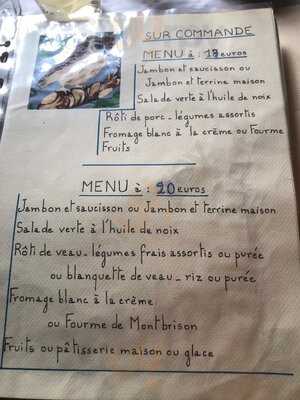 SUR COMMANDE
MENU à : 18 euros
Jambon et saucisson ou
Jambon et terrine maison
Salade verte à l'huile de noix
Rôti de porc - légumes assortis
Fromage blanc à la crème ou fourme
Fruits
MENU à : 20 euros
Jambon et saucisson ou Jambon et terrine maison
Salade verte à l'huile de noix
Rôti de veau - légumes frais assortis ou purée
ou blanquette de veau - riz ou purée
Fromage blanc à la crème
ou Fourme de Montbrison
Fruits ou pâtisserie maison ou glace